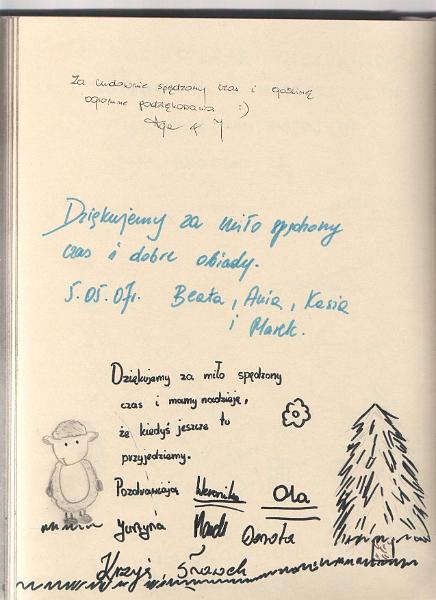 Za cudownie spędzony czas i gościnę
ogromne podziękowania :)
Aga & J
Dziękujemy za miło spędzony
czas i dobre obiady.
5.05.07r. Beata, Ania, Kasia
i Marek.
Dziękujemy za miło spędzony
czas i mamy nadzieję,
że kiedyś jeszcze tu
przyjedziemy.
Pozdrawiają Weronika Ola
Justyna Marek Dorota
Krzyś, Sławek